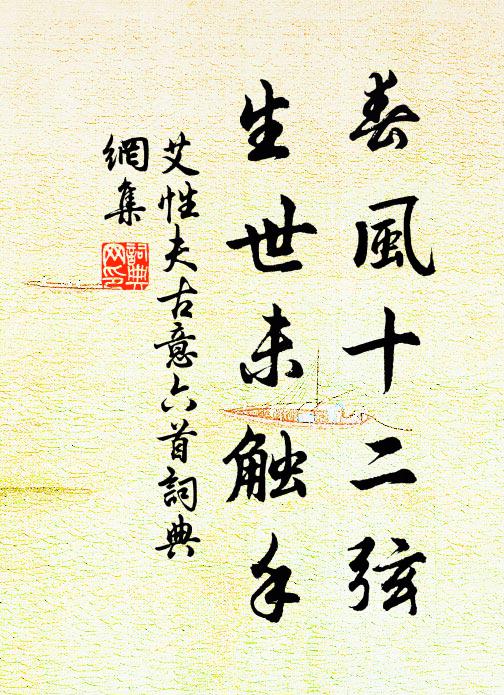 春風十二弦
生世未触手
艾性夫古意六首詞典
網集
詞典
网印